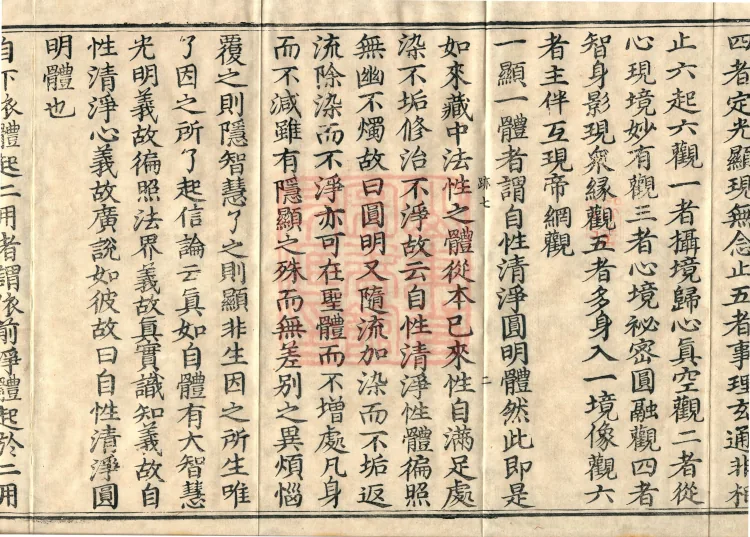 四者定光顯現無念止五者事理玄通非相
止六起六觀一者攝境歸心眞空觀二者從
心現境妙有觀三者心境祕密圓融觀四者
智身影現衆緣觀五者多身入一境像觀六
者主伴互現帝網觀
一顯一體者謂自性清淨圓明體然此即是
跡七
二
如來藏中法性之體從本已來性自滿足處
染不垢修治不淨故云自性清淨性體徧照
無幽不燭故曰圓明又隨流加染而不垢返
流除染而不淨亦可在聖體而不增處凡身
而不減雖有隱顯之殊而無差別之異煩惱
覆之則隱智慧了之則顯非生因之所生唯
了因之所了起信論云眞如自體有大智慧
光明義故徧照法界義故眞實識知義故自
性清淨心義故廣說如彼故曰自性清淨圓
明體也
自下依體起二用者謂依前淨體起於二用